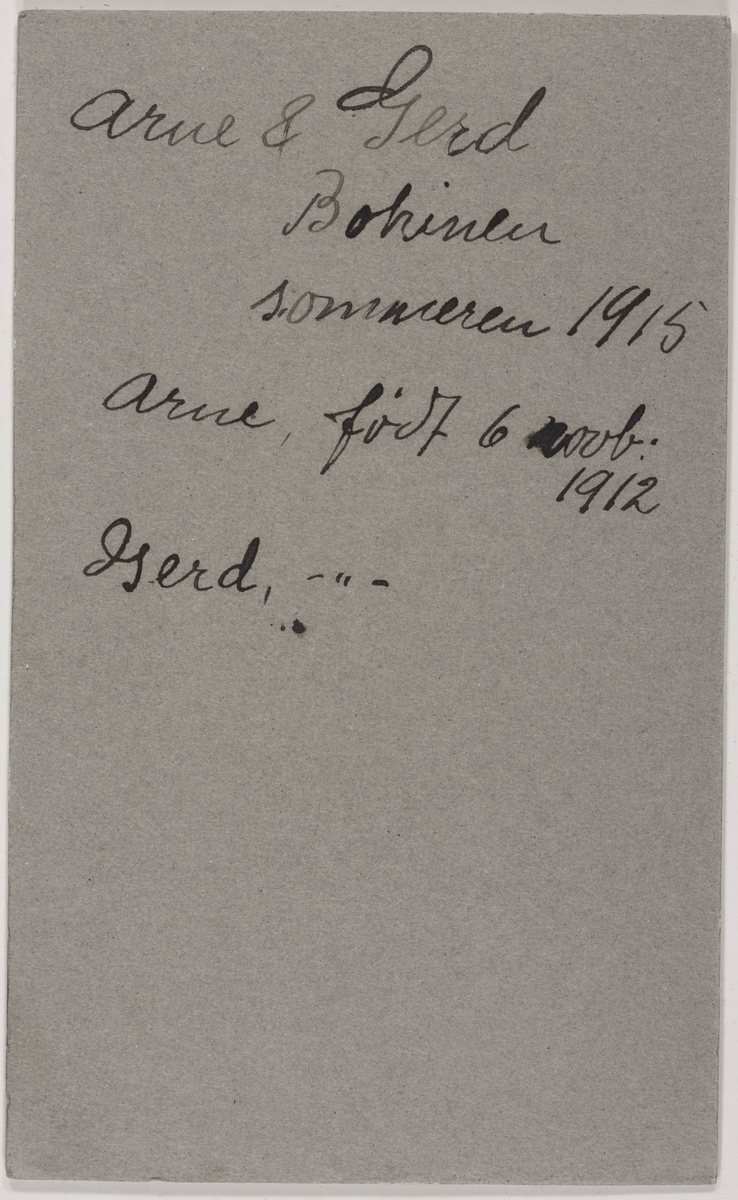 Arne & Gerd
Bokinen
sommeren 1915
Arne, født 6 novb:
1912
Gerd, -"-